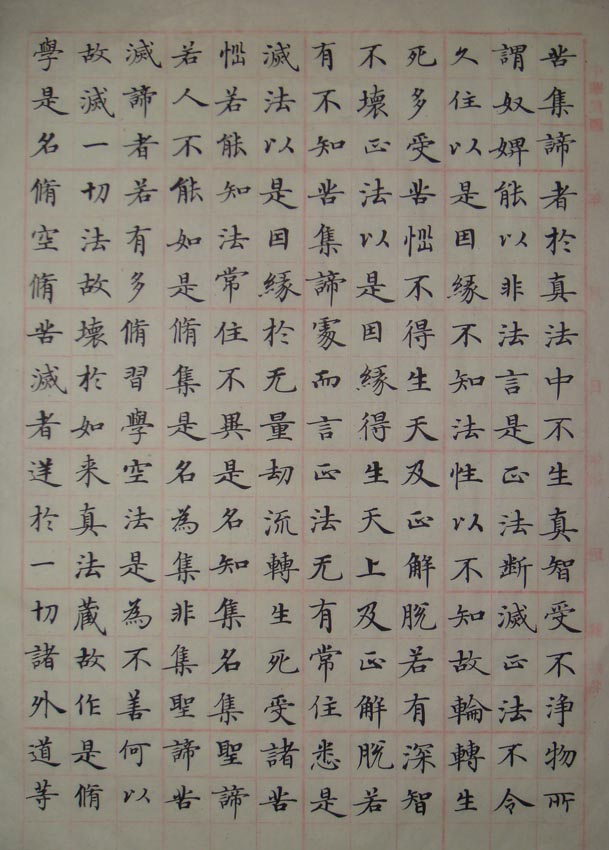 苦集諦者於真法中不生真智受不浄物所
謂奴婢能以非法言是正法断滅正法不令
久住以是因緣不知法性以不知故輪轉生
死多受苦惱不得生天及正解脫若有深智
不壞正法以是因緣得生天上及正解脫若
有不知苦集諦處而言正法无有常住悉是
滅法以是因緣於无量劫流轉生死受諸苦
惱若能知法常住不異是名知集名集聖諦
若人不能如是脩集是名為集非集聖諦苦
滅諦者若有多脩習學空法是為不善何以
故滅一切法故壞於如来真法蔵故作是脩
學是名脩空脩苦滅者逆於一切諸外道等